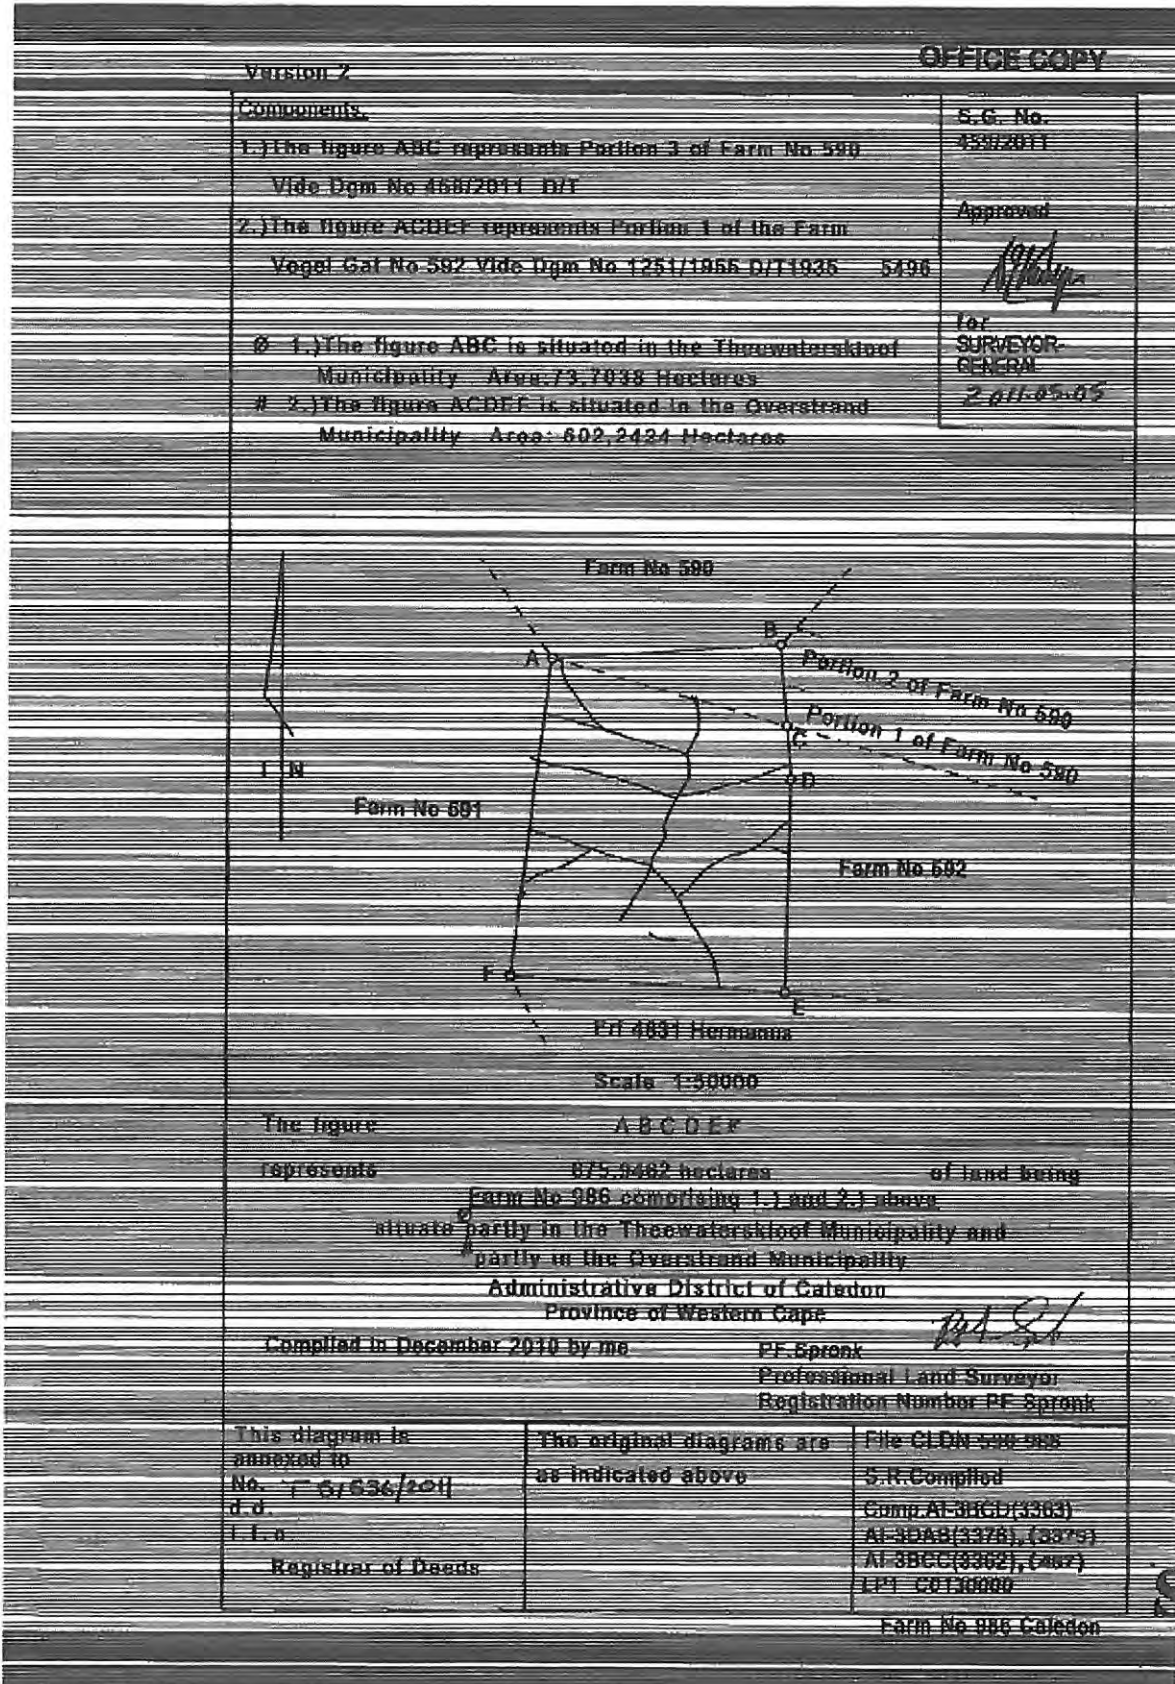 OFFICE COPY
Version 2
Components.
1.)The figure ABC represents Portion 3 of Farm No 590
Vide Dgm No 458/2011 D/T
2.)The figure ACDEF represents Portion 1 of the Farm
Vogel Gat No 592 Vide Dgm No 1251/1955 D/T1935 5496
Ø 1.)The figure ABC is situated in the Theewaterskloof
Municipality Area:73,7038 Hectares
# 2.)The figure ACDEF is situated in the Overstrand
Municipality Area: 602,2424 Hectares
S.G. No.
459/2011
Approved
for
SURVEYOR-
GENERAL
2011-05-05
Farm No 590
B
A
Portion 2 of Farm No 590
C
Portion 1 of Farm No 590
T N
D
Farm No 591
Farm No 592
F
E
Erf 4831 Hermanus
Scale 1:50000
The figure A B C D E F
represents 675,9462 hectares of land being
Farm No 986 comprising 1.) and 2.) above
Ø
situate partly in the Theewaterskloof Municipality and
# partly in the Overstrand Municipality
Administrative District of Caledon
Province of Western Cape
Compiled in December 2010 by me
PF.Spronk
Professional Land Surveyor
Registration Number PF Spronk
This diagram is
annexed to
No.
d.d.
i.f.o
Registrar of Deeds
The original diagrams are
as indicated above
File CLDN
S.R.Compiled
Comp.AI-3BCD(3363)
AI-3DAB(3376), (3375)
AI-3BCC(3362), (467)
LPI C0130000
Farm No 986 Caledon